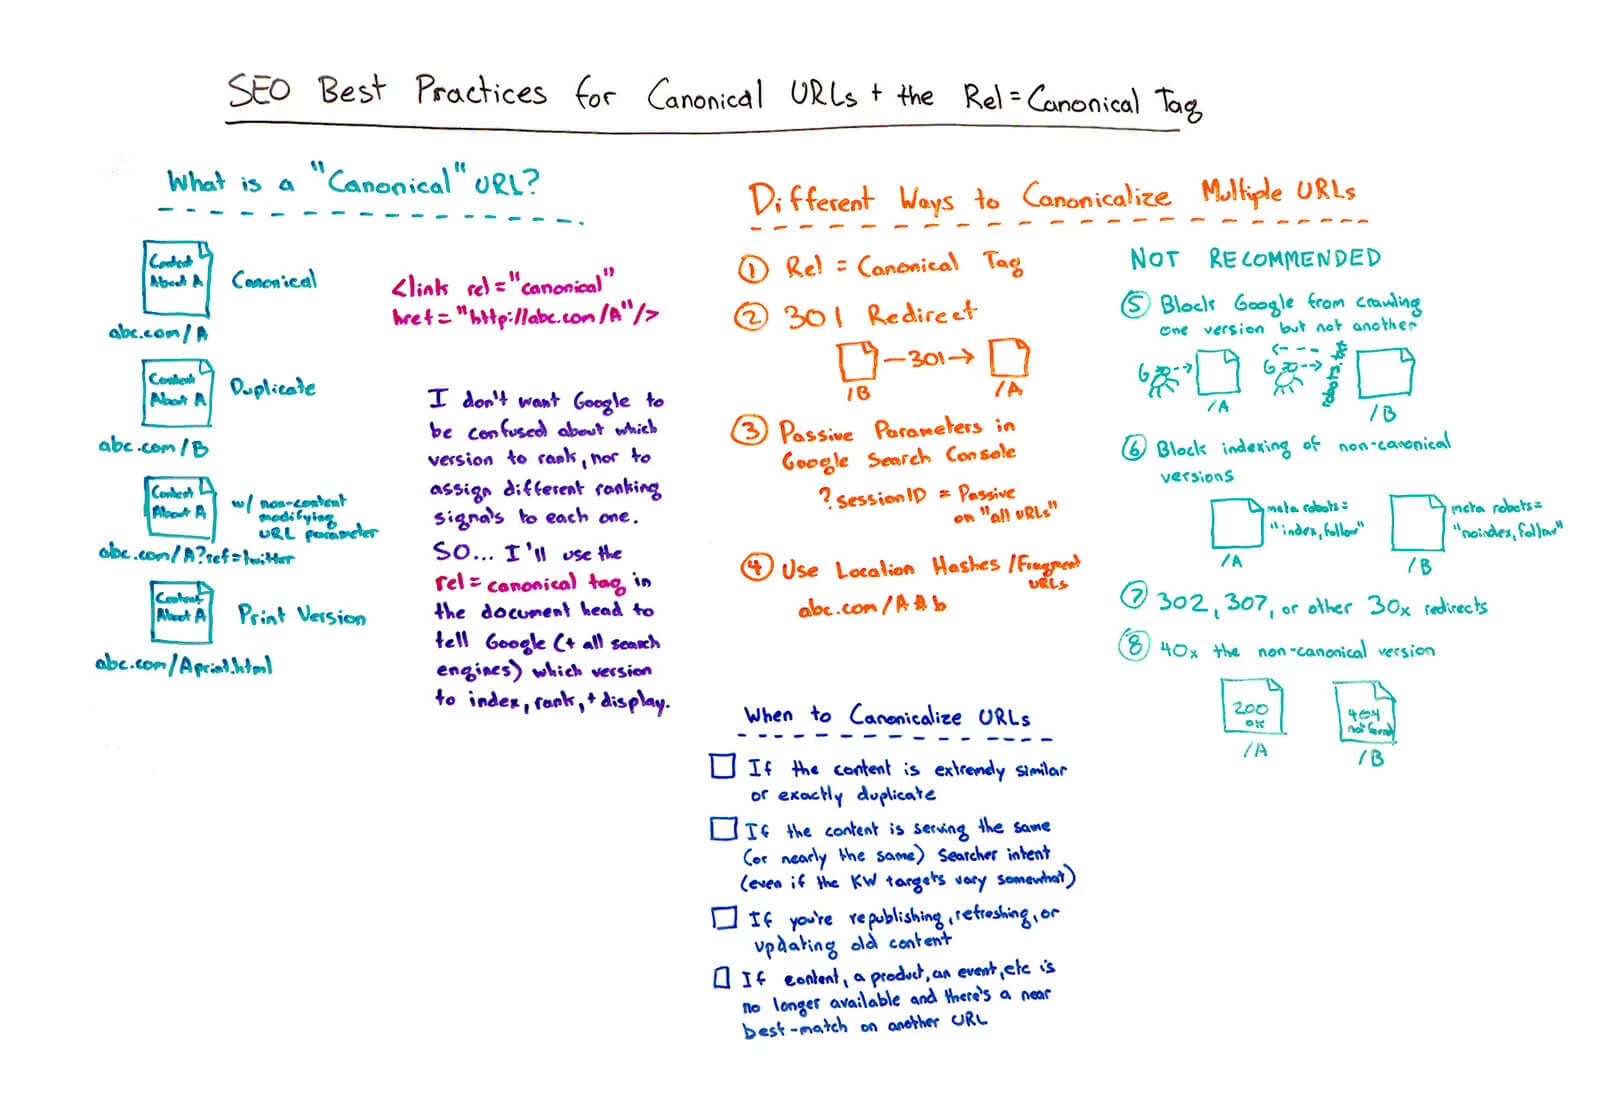 SEO Best Practices for Canonical URLs + the Rel=Canonical Tag
What is a "Canonical" URL?
Content
About A
Canonical
abc.com/A
Content
About A
Duplicate
abc.com/B
Content
About A
w/ non-content
modifying
URL parameter
abc.com/A?ref=twitter
Content
About A
Print Version
abc.com/Aprint.html
<link rel="canonical"
href="http://abc.com/A"/>
I don't want Google to
be confused about which
version to rank, nor to
assign different ranking
signals to each one.
SO... I'll use the
rel=canonical tag in
the document head to
tell Google (+ all search
engines) which version
to index, rank, + display.
Different Ways to Canonicalize Multiple URLs
1 Rel = Canonical Tag
2 301 Redirect
301
/B
/A
3 Passive Parameters in
Google Search Console
?sessionID = Passive
on "all URLs"
4 Use Location Hashes /Fragment
URLs
abc.com/A#b
NOT RECOMMENDED
5 Block Google from crawling
one version but not another
/A
robots.txt
/B
6 Block indexing of non-canonical
versions
meta robots=
"index, follow"
/A
meta robots=
"noindex, follow"
/B
7 302, 307, or other 30x redirects
8 40x the non-canonical version
200
OK
/A
404
not found
/B
When to Canonicalize URLs
If the content is extremely similar
or exactly duplicate
If the content is serving the same
(or nearly the same) searcher intent
(even if the KW targets vary somewhat)
If you're republishing, refreshing, or
updating old content
If content, a product, an event, etc is
no longer available and there's a near
best-match on another URL